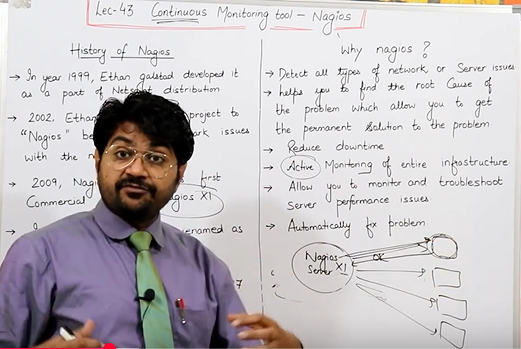 Lec-43 Continuous Monitoring tool - Nagios
History of Nagios
→ In year 1999, Ethan galstad developed it
as a part of Netsaint distribution
→ 2002, Ethan project to
"Nagios" issues
with the
→ 2009, first
Commercial Nagios XI
renamed as
Why nagios?
→ Detect all types of network, or Server issues
→ helps you to find the root Cause of
the problem which allow you to get
the permanent Solution to the problem
→ Reduce downtime
→ Active Monitoring of entire infrastructure
→ Allow you to monitor and troubleshoot
Server performance issues
→ Automatically fix problem.
Nagios
Server XI
OK